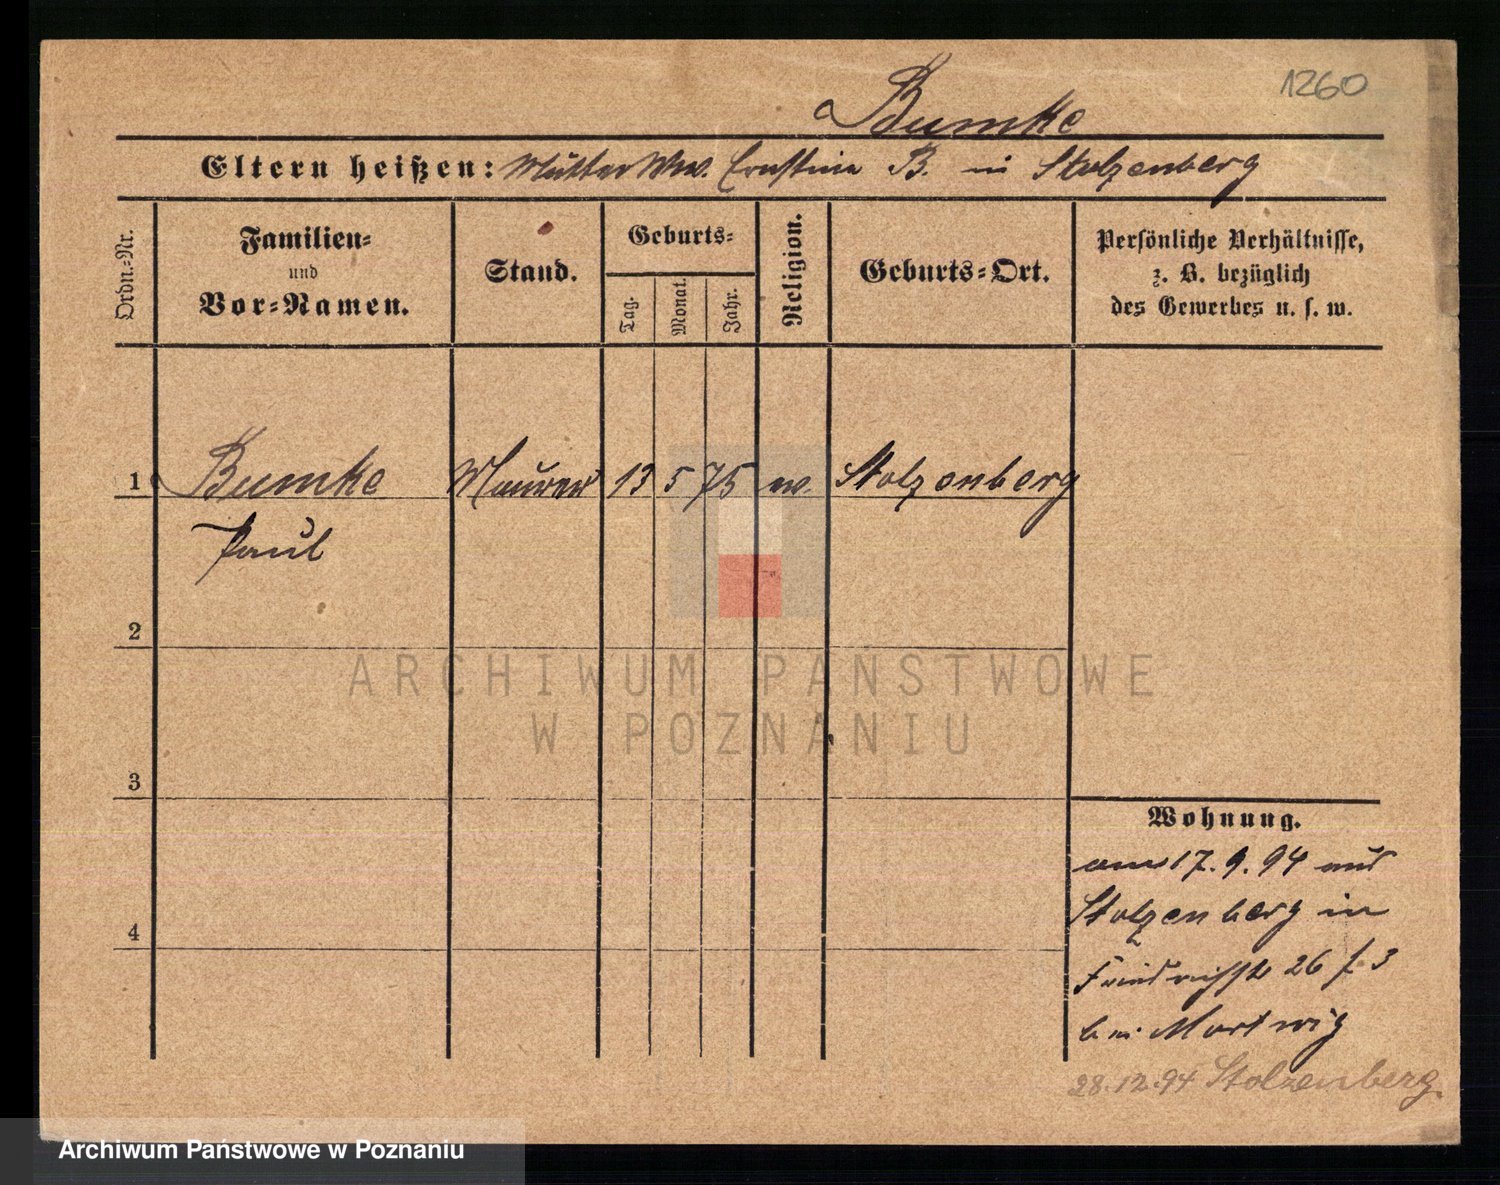 1260
Bumke
Eltern heißen: Mutter Ww. Ernstine B. in Stolzenberg
Ordn.-Nr.
Familien- und Vor-Namen.
Stand.
Geburts-
Tag.
Monat.
Jahr.
Religion.
Geburts-Ort.
Persönliche Verhältnisse,
z. B. bezüglich
des Gewerbes u. s. w.
1 Bumke Maurer 13 5 75 ev. Stolzenberg
Paul
2
3
4
Wohnung.
am 17. 9. 94 aus
Stolzenberg in
Friedrichstr 26 f. 3
bei
28.12.94 Stolzenberg
ARCHIWUM PAŃSTWOWE
W POZNANIU
Archiwum Państwowe w Poznaniu